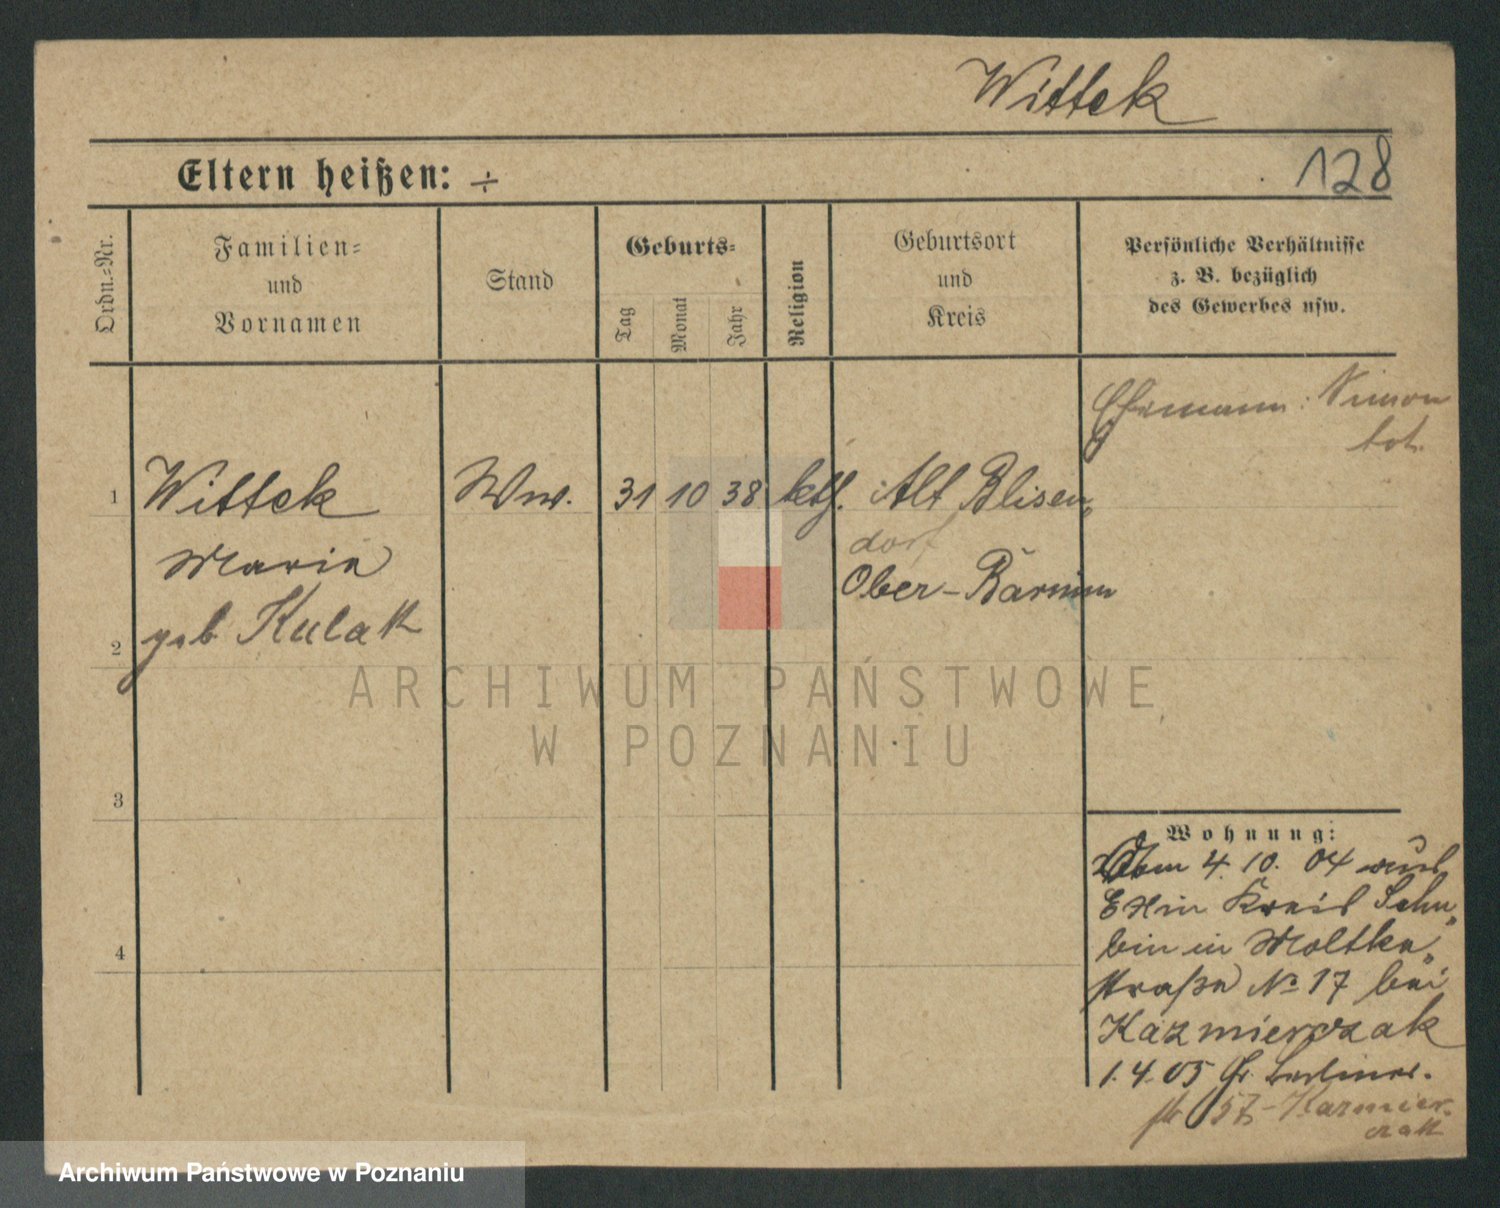 Wittek
128
Eltern heißen: ÷
Ordn.=Nr.
Familien=
und
Vornamen
Stand
Geburts=
Tag
Monat
Jahr
Religion
Geburtsort
und
Kreis
Persönliche Verhältnisse
z. B. bezüglich
des Gewerbes usw.
Ehemann: Simon
tot.
1 Wittek Ww. 31 10 38 kth. Alt Blisen„
dorf
Maria
Ober-Barnim
2 geb Kulak
3
4
Wohnung:
4. 10. 04 aus
Exin Kreis Schu„
bin in Moltke„
straße No 17 bei
Kazmierczak
1. 4. 05 Gr. Berliner.
str 57 Kazmier„
czak
ARCHIWUM PAŃSTWOWE
W POZNANIU
Archiwum Państwowe w Poznaniu